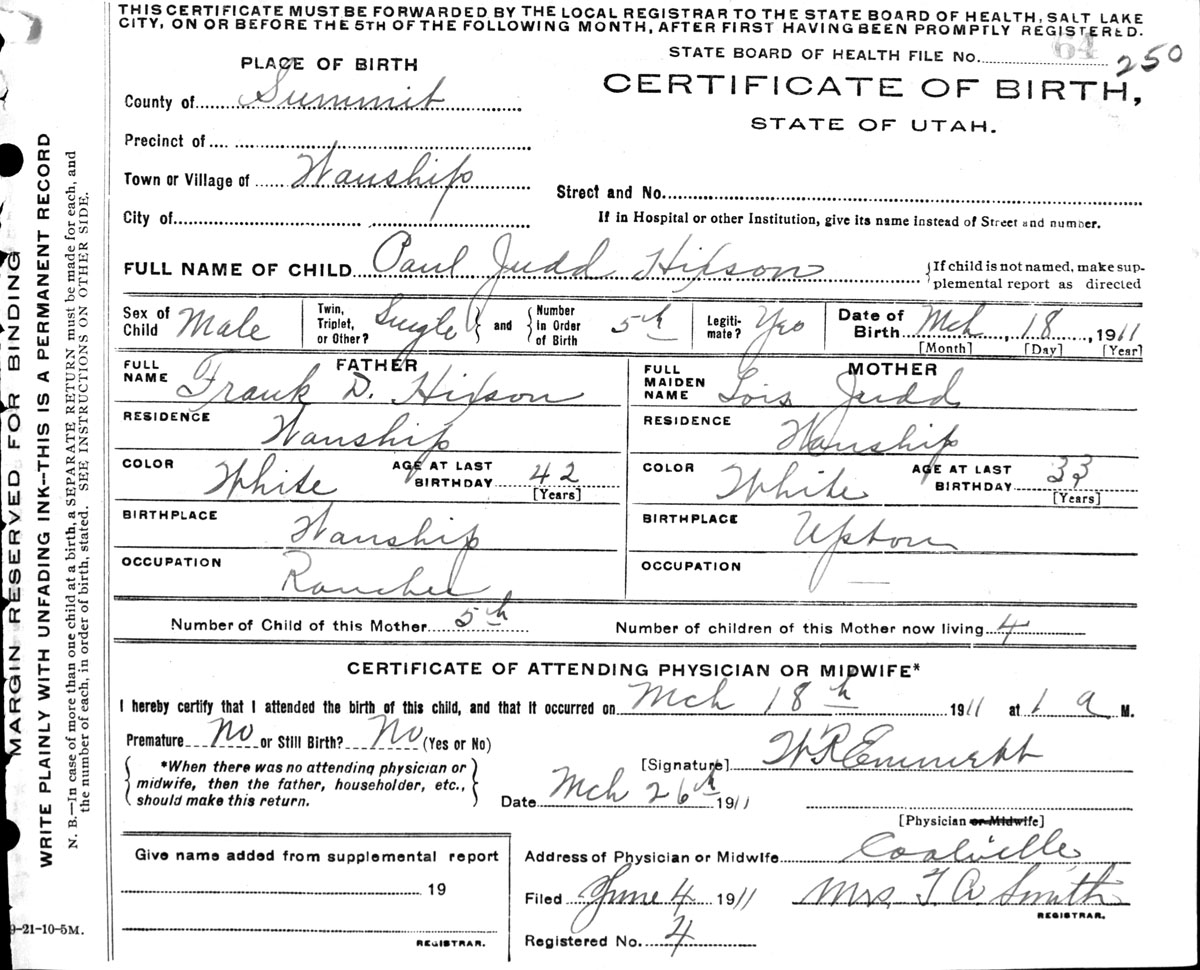 THIS CERTIFICATE MUST BE FORWARDED BY THE LOCAL REGISTRAR TO THE STATE BOARD OF HEALTH, SALT LAKE
CITY, ON OR BEFORE THE 5TH OF THE FOLLOWING MONTH, AFTER FIRST HAVING BEEN PROMPTLY REGISTERED.
STATE BOARD OF HEALTH FILE NO. 64 250
PLACE OF BIRTH
CERTIFICATE OF BIRTH,
STATE OF UTAH.
County of Summit
Precinct of
Town or Village of Wanship
Street and No.
City of
If in Hospital or other Institution, give its name instead of Street and number.
FULL NAME OF CHILD Paul Judd Hixson {If child is not named, make sup-
plemental report as directed
Sex of Child Male
Twin, Triplet, or Other? Single } and { Number In Order of Birth 5th
Legiti-mate? Yes
Date of Birth Mch, 18, 1911
[Month] [Day] [Year]
FATHER
FULL NAME Frank D. Hixson
RESIDENCE Wanship
COLOR White AGE AT LAST BIRTHDAY 42
[Years]
BIRTHPLACE Wanship
OCCUPATION Rancher
MOTHER
FULL MAIDEN NAME Lois Judd
RESIDENCE Wanship
COLOR White AGE AT LAST BIRTHDAY 33
[Years]
BIRTHPLACE Upton
OCCUPATION —
Number of Child of this Mother 5th Number of children of this Mother now living 4
CERTIFICATE OF ATTENDING PHYSICIAN OR MIDWIFE*
I hereby certify that I attended the birth of this child, and that it occurred on Mch 18th 1911 at 1 a M.
Premature No or Still Birth? No (Yes or No)
{ *When there was no attending physician or
midwife, then the father, householder, etc.,
should make this return. }
[Signature] W R Emmett
Date Mch 26th 1911
[Physician or Midwife]
Give name added from supplemental report
19
REGISTRAR.
Address of Physician or Midwife Coalville
Filed June 4 1911 Mrs. T A Smith
REGISTRAR.
Registered No. 4
9-21-10-5M.
MARGIN RESERVED FOR BINDING
WRITE PLAINLY WITH UNFADING INK—THIS IS A PERMANENT RECORD
N. B.—In case of more than one child at a birth, a SEPARATE RETURN must be made for each, and
the number of each, in order of birth, stated. SEE INSTRUCTIONS ON OTHER SIDE.